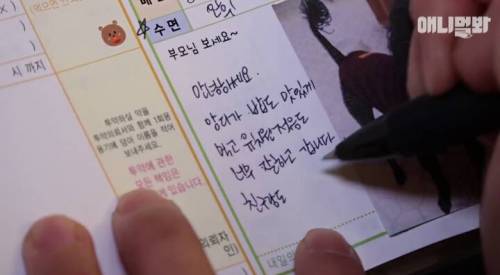 애니멀봐
수면
부모님 보세요~
안녕하세요.
앙다가 밥도 맛있게
먹고 유치원 적응도
너무 잘하고 갑니다
친구랑도
시 까지
투약하실 약을
투약의뢰서와 함께 1회용
용기에 담아 이름을 적어
보내주세요.
투약에 관한
모든 책임은
있습니다
의뢰자
인)
내일의